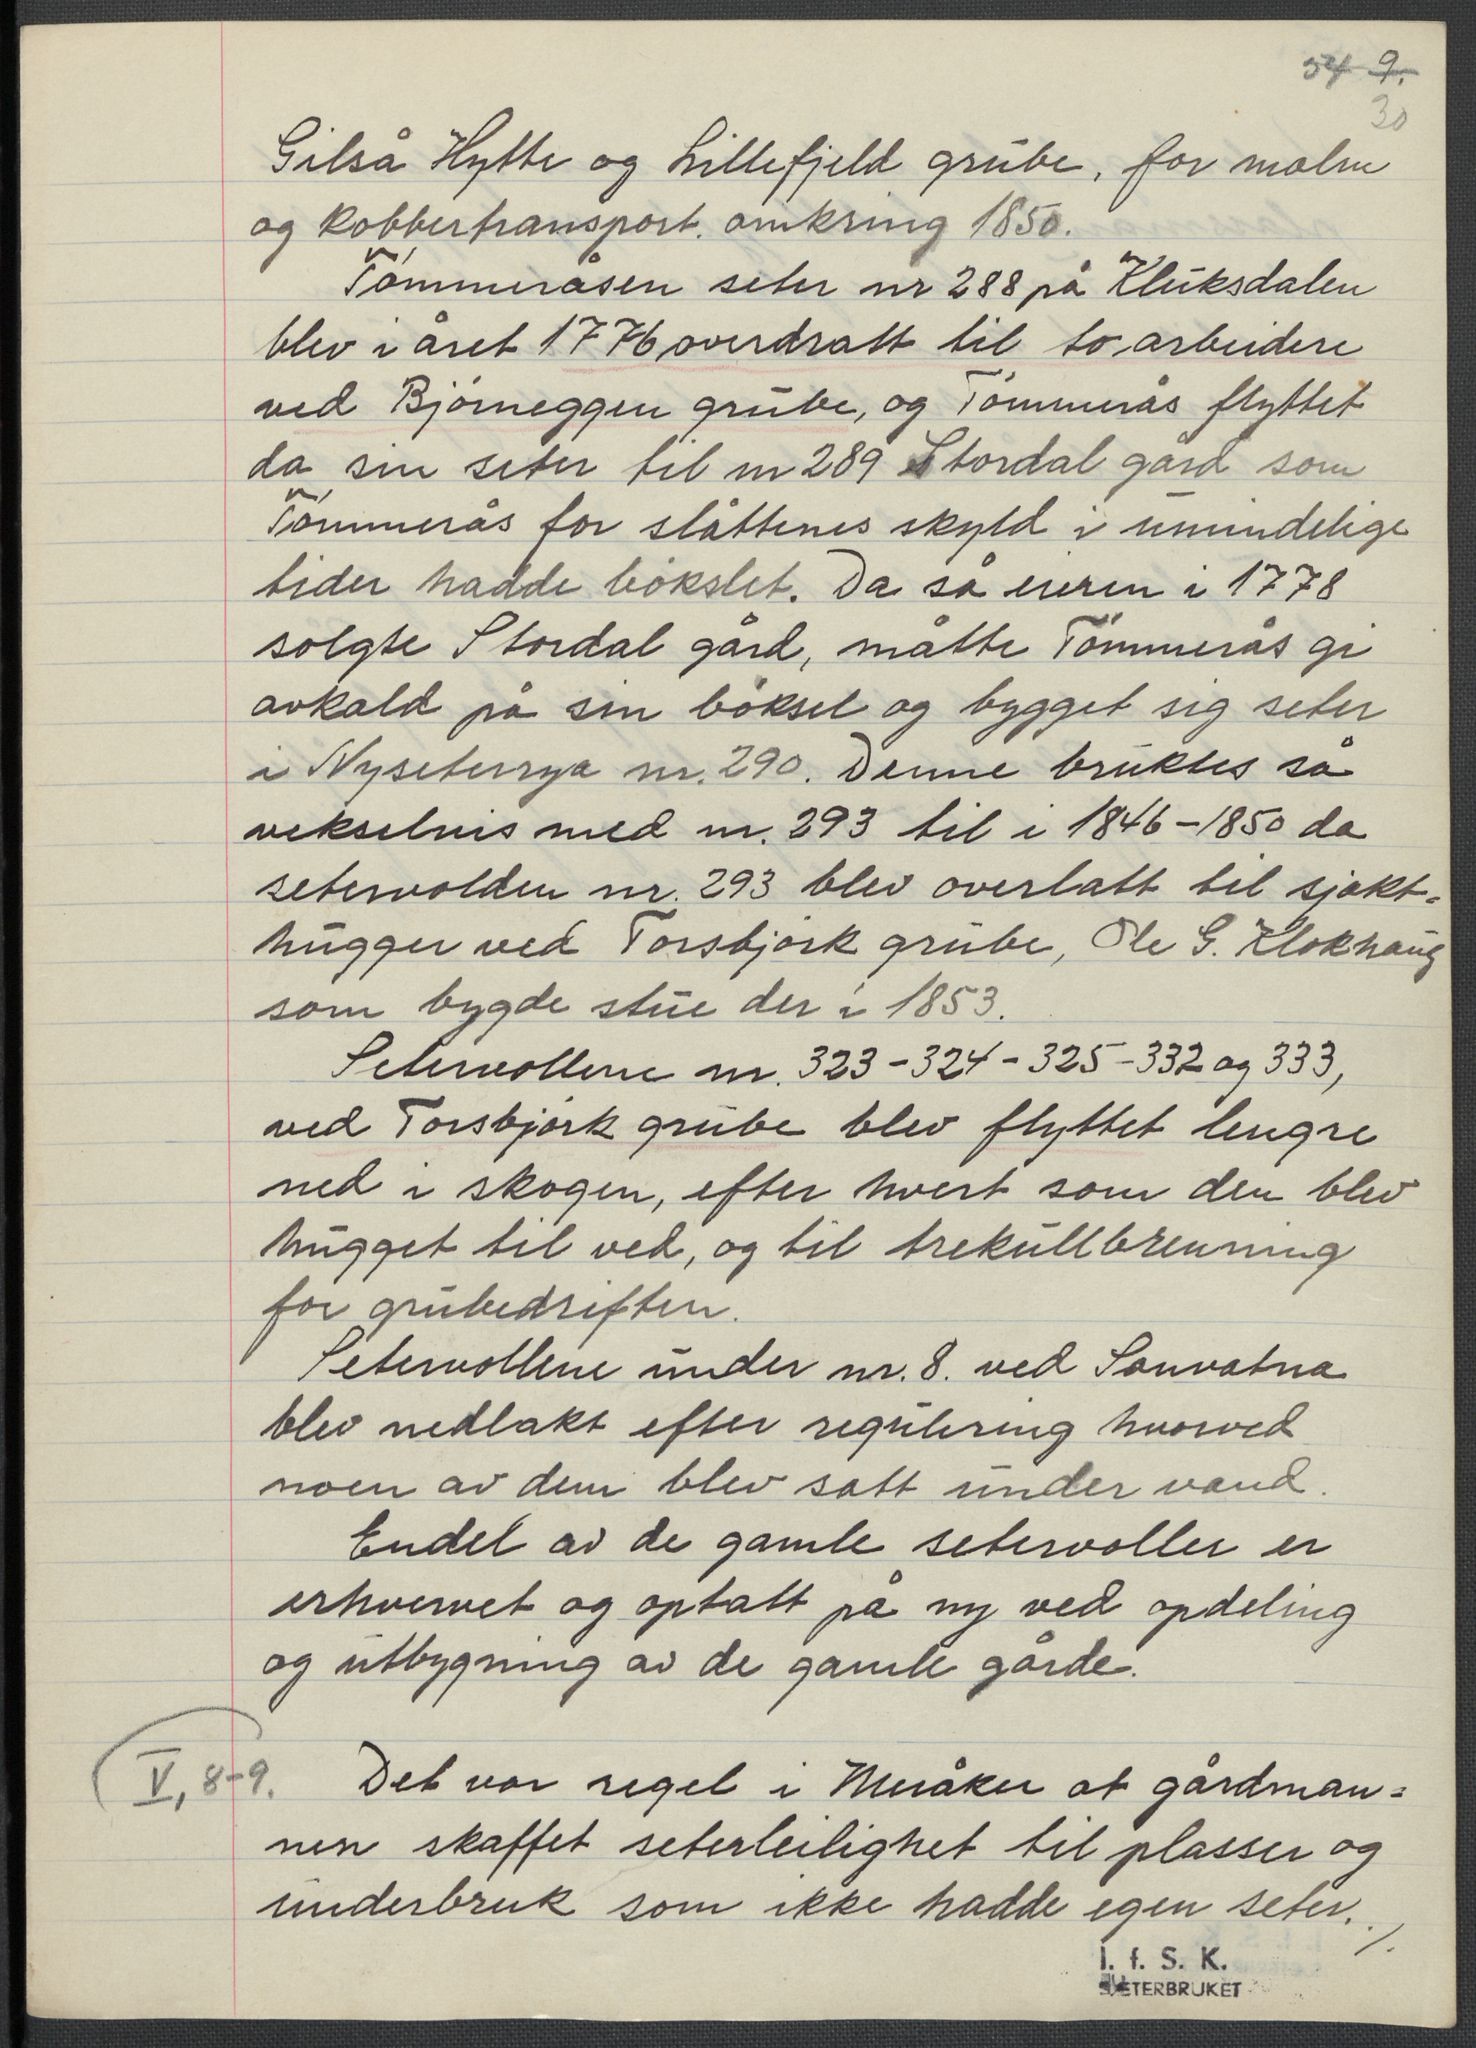 54 9.
30
Gilså Hytte og Lillefjeld grube, for malm
og kobbertransport. omkring 1850.
Tømmeråsen seter nr 288 på Kluksdalen
blev i året 1776 overdratt til to arbeidere
ved Bjørneggen grube, og Tømmerås flyttet
da sin seter til nr 289 Stordal gård som
Tømmerås for slåttenes skyld i umindelige
tider hadde bøkslet. Da så eieren i 1778
solgte Stordal gård, måtte Tømmerås gi
avkald på sin bøksel og bygget sig seter
i Nyseterrya nr. 290. Denne bruktes så
vekselvis med nr. 293 til i 1846-1850 da
setervolden nr. 293 blev overlatt til sjakt-
hugger ved Torsbjørk grube, Ole G. Klokhaug
som bygde stue der i 1853.
Setervollene nr. 323-324-325-332 og 333,
ved Torsbjørk grube blev flyttet lengre
ned i skogen, efter hvert som den blev
hugget til ved, og til trekullbrenning
for grubedriften.
Setervollene under nr. 8. ved Sonvatna
blev nedlakt efter regulering hvorved
noen av dem blev satt under vand.
Endel av de gamle setervoller er
erhvervet og optatt på ny ved opdeling
og utbygning av de gamle gårde.
V, 8-9. Det var regel i Meråker at gårdman-
nen skaffet seterleilighet til plasser og
underbruk som ikke hadde egen seter. ./.
I. f. S. K.
SETERBRUKET